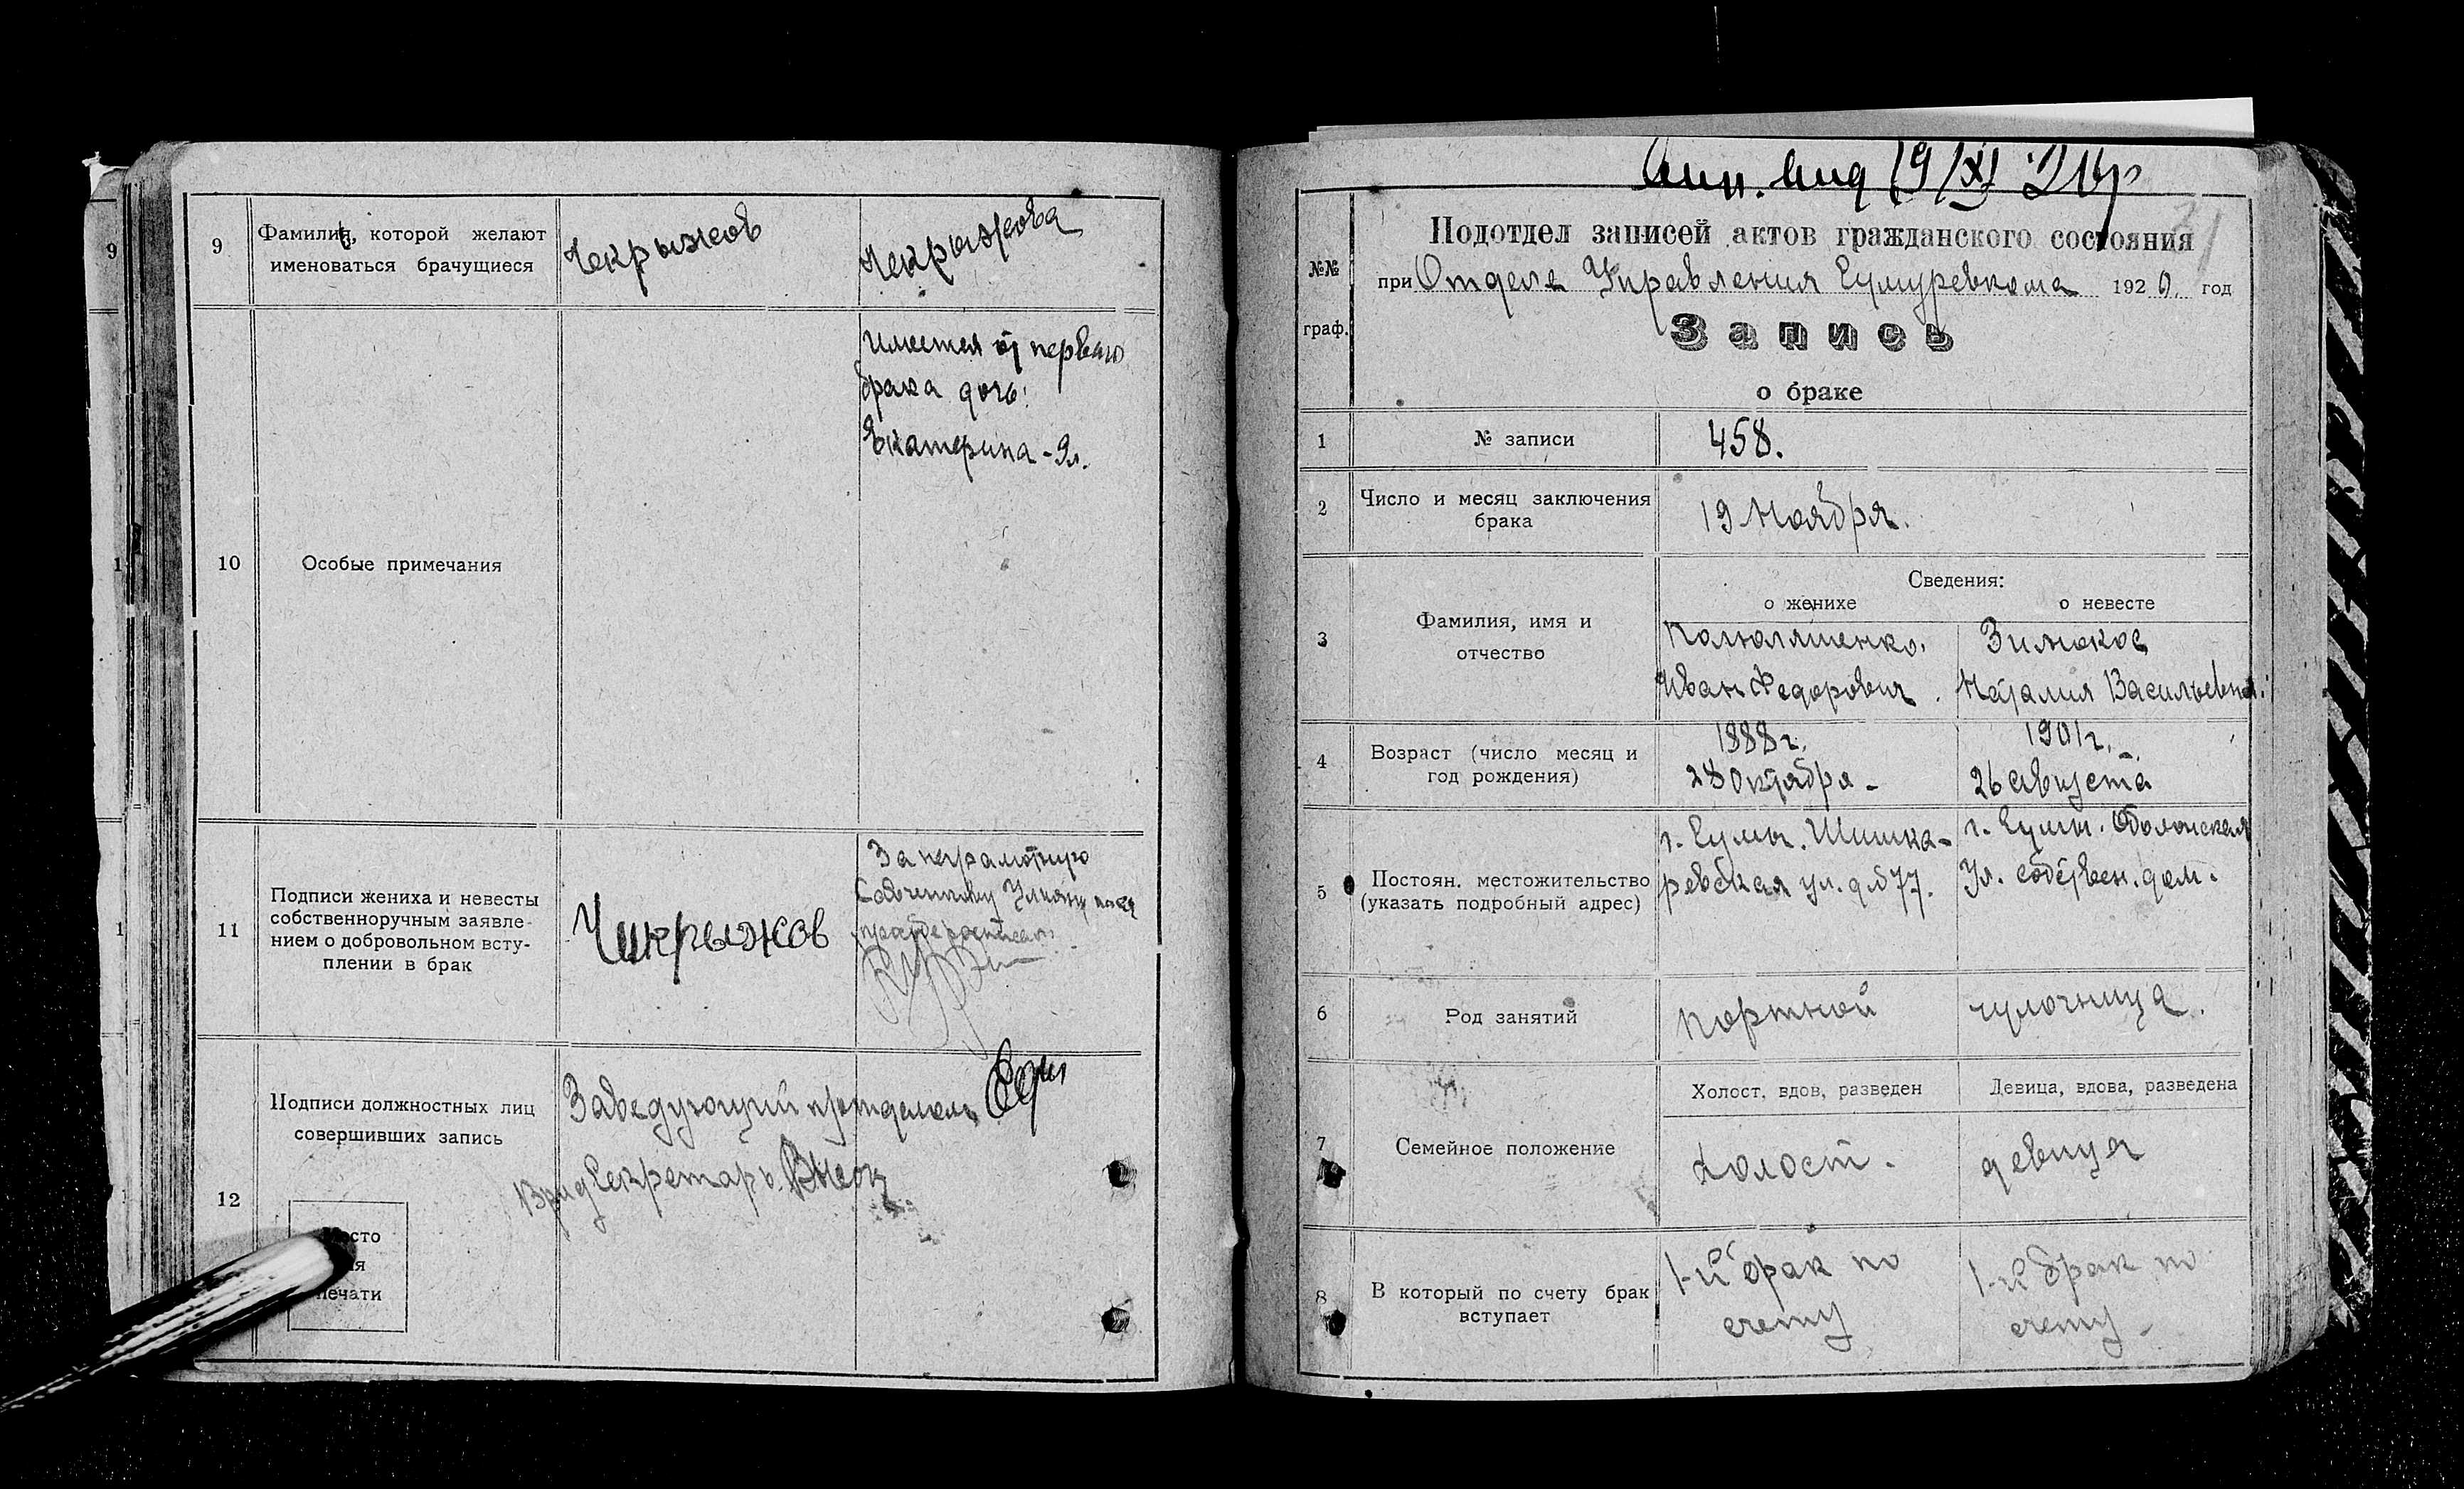 9
Фамилия, которой желают
именоваться брачущиеся
Чекрыжов
Чекрыжова
10
Особые примечания
Имеется от первого
брака дочь:
Екатерина - 9 л.
11
Подписи жениха и невесты
собственноручным заявле-
нием о добровольном всту-
плении в брак
Чикрыжов
За неграмотную
12
Подписи должностных лиц
совершивших запись
Заведующий
Врид Секретарь
Место
для
печати
19/XI
№№
граф.
Подотдел записей актов гражданского состояния
при Отделе Управления Сумуревкома 1920. год
Запись
о браке
1
№ записи
458.
2
Число и месяц заключения
брака
19 Ноября.
3
Фамилия, имя и
отчество
Сведения:
о женихе
о невесте
Иван Федорович.
Наталия Васильевна.
4
Возраст (число месяц и
год рождения)
1888 г.
28 Октября -
1901 г.
26 Августа
5
Постоян. местожительство
(указать подробный адрес)
г. Сумы. Шишка-
ревская ул. д № 77.
г. Сумы. Оболонская
Ул. собствен. дом.
6
Род занятий
портной
чулочница.
7
Семейное положение
Холост, вдов, разведен
Девица, вдова, разведена
холост.
девица
8
В который по счету брак
вступает
1-й брак по
счету
1-й брак по
счету -